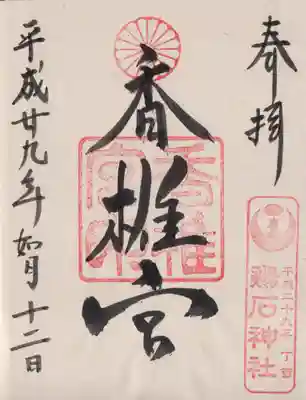 奉拝
平成二十九年 丁酉
鶏石神社
香椎宮
香椎
宮印
平成廿九年 如月 十二日